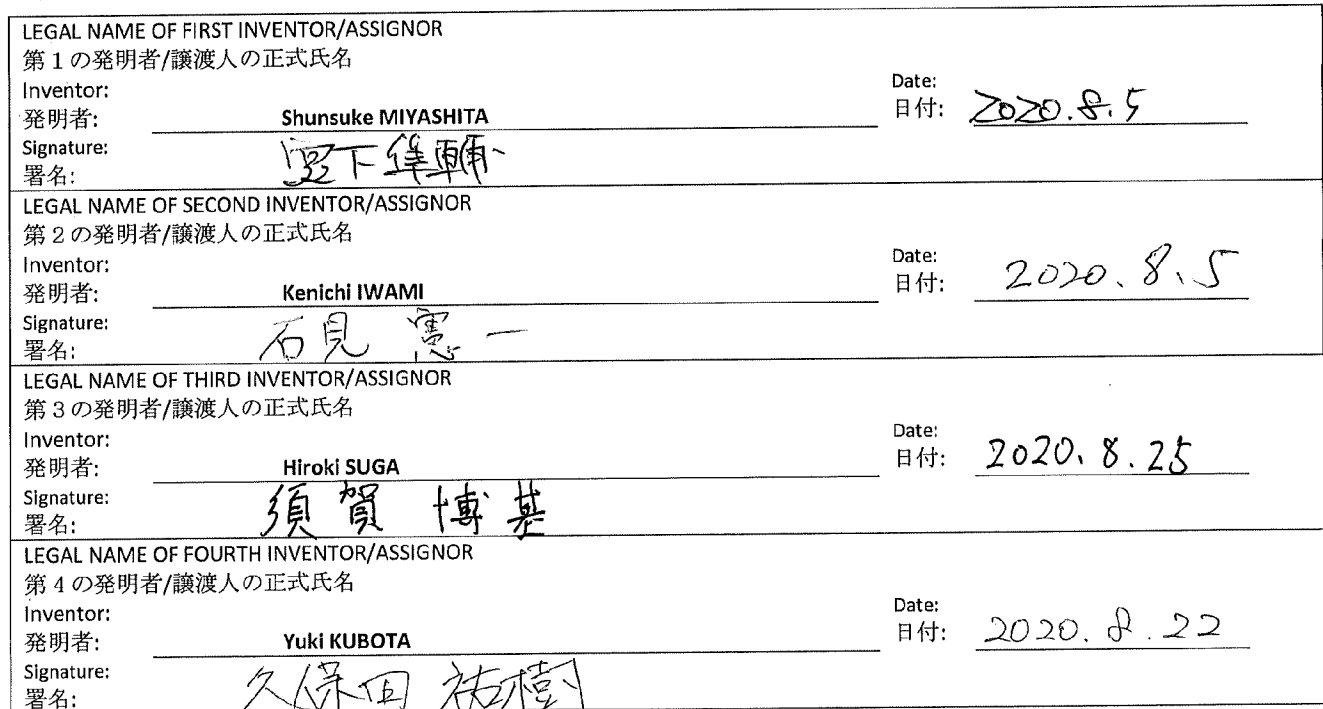 LEGAL NAME OF FIRST INVENTOR/ASSIGNOR
第1の発明者/譲渡人の正式氏名
Inventor:
発明者: Shunsuke MIYASHITA
Date:
日付: 2020.8.5
Signature:
署名: 宮下隼輔
LEGAL NAME OF SECOND INVENTOR/ASSIGNOR
第2の発明者/譲渡人の正式氏名
Inventor:
発明者: Kenichi IWAMI
Date:
日付: 2020.8.5
Signature:
署名: 石見 憲一
LEGAL NAME OF THIRD INVENTOR/ASSIGNOR
第3の発明者/譲渡人の正式氏名
Inventor:
発明者: Hiroki SUGA
Date:
日付: 2020.8.25
Signature:
署名: 須賀 博基
LEGAL NAME OF FOURTH INVENTOR/ASSIGNOR
第4の発明者/譲渡人の正式氏名
Inventor:
発明者: Yuki KUBOTA
Date:
日付: 2020.8.22
Signature:
署名: 久保田 祐樹